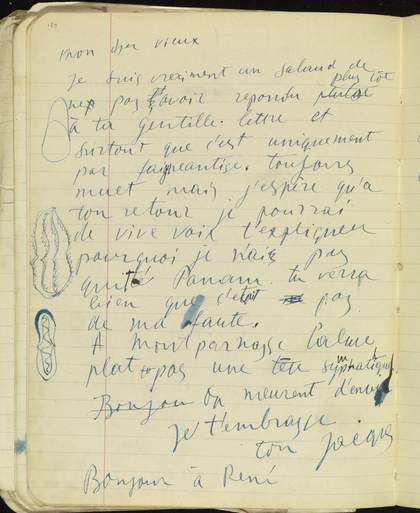 mon cher vieux
je suis vraiment un salaud de
pas t'avoir repondu plus tôt
à ta gentille lettre et
surtout que c'est uniquement
par faigneantise. toujours
muet mais j'espère qu'a
ton retour je pourrai
de vive voix t'expliquer
pourquoi je n'ais pas
quitté Panam. tu verra
bien que c'etait pas
de ma faute.
A montparnasse Calme
plat pas une tete sympathique.
Bonjour On meurent d'ennui
Je t'embrasse
ton Jacques
Bonjour à René